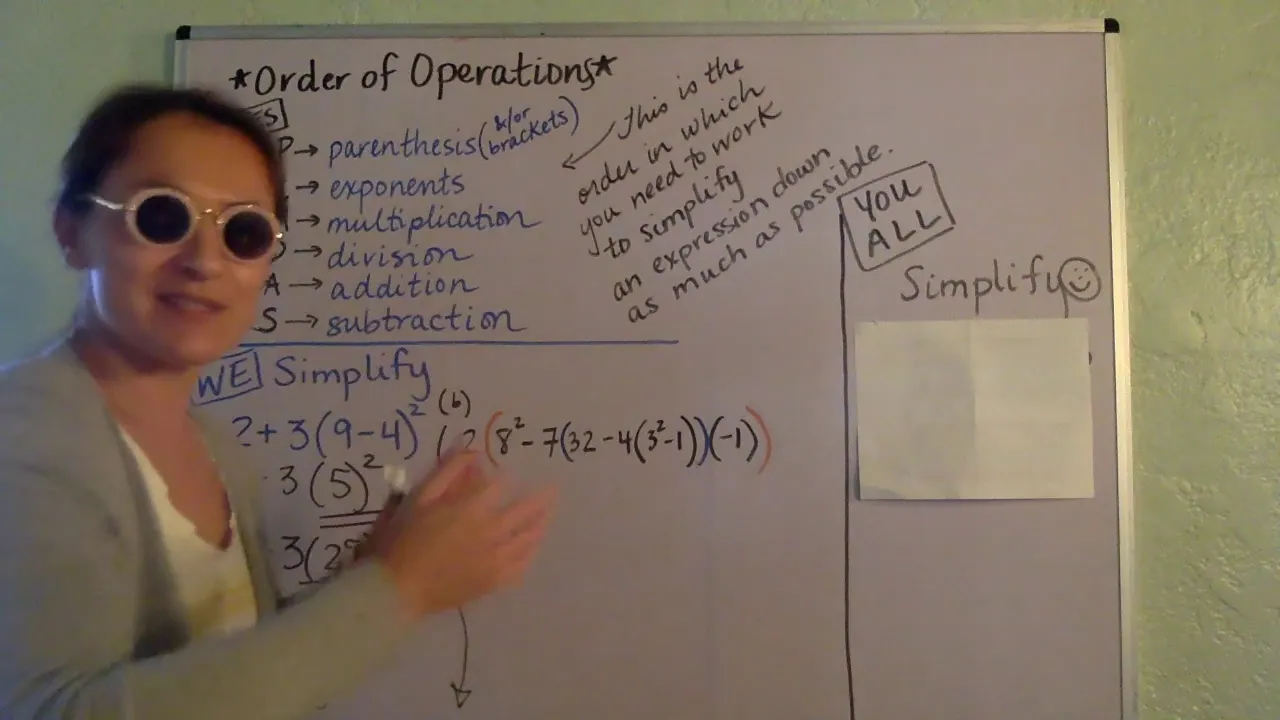 *Order of Operations*
P → parenthesis (&/or brackets)
→ exponents
→ multiplication
D → division
A → addition
S → subtraction
This is the
order in which
you need to work
to simplify
an expression down
as much as possible.
WE Simplify
2 + 3(9-4)²
3(5)²
3(2
(b)
(2(8²-7(32-4(3²-1))(-1))
YOU
ALL
Simplify